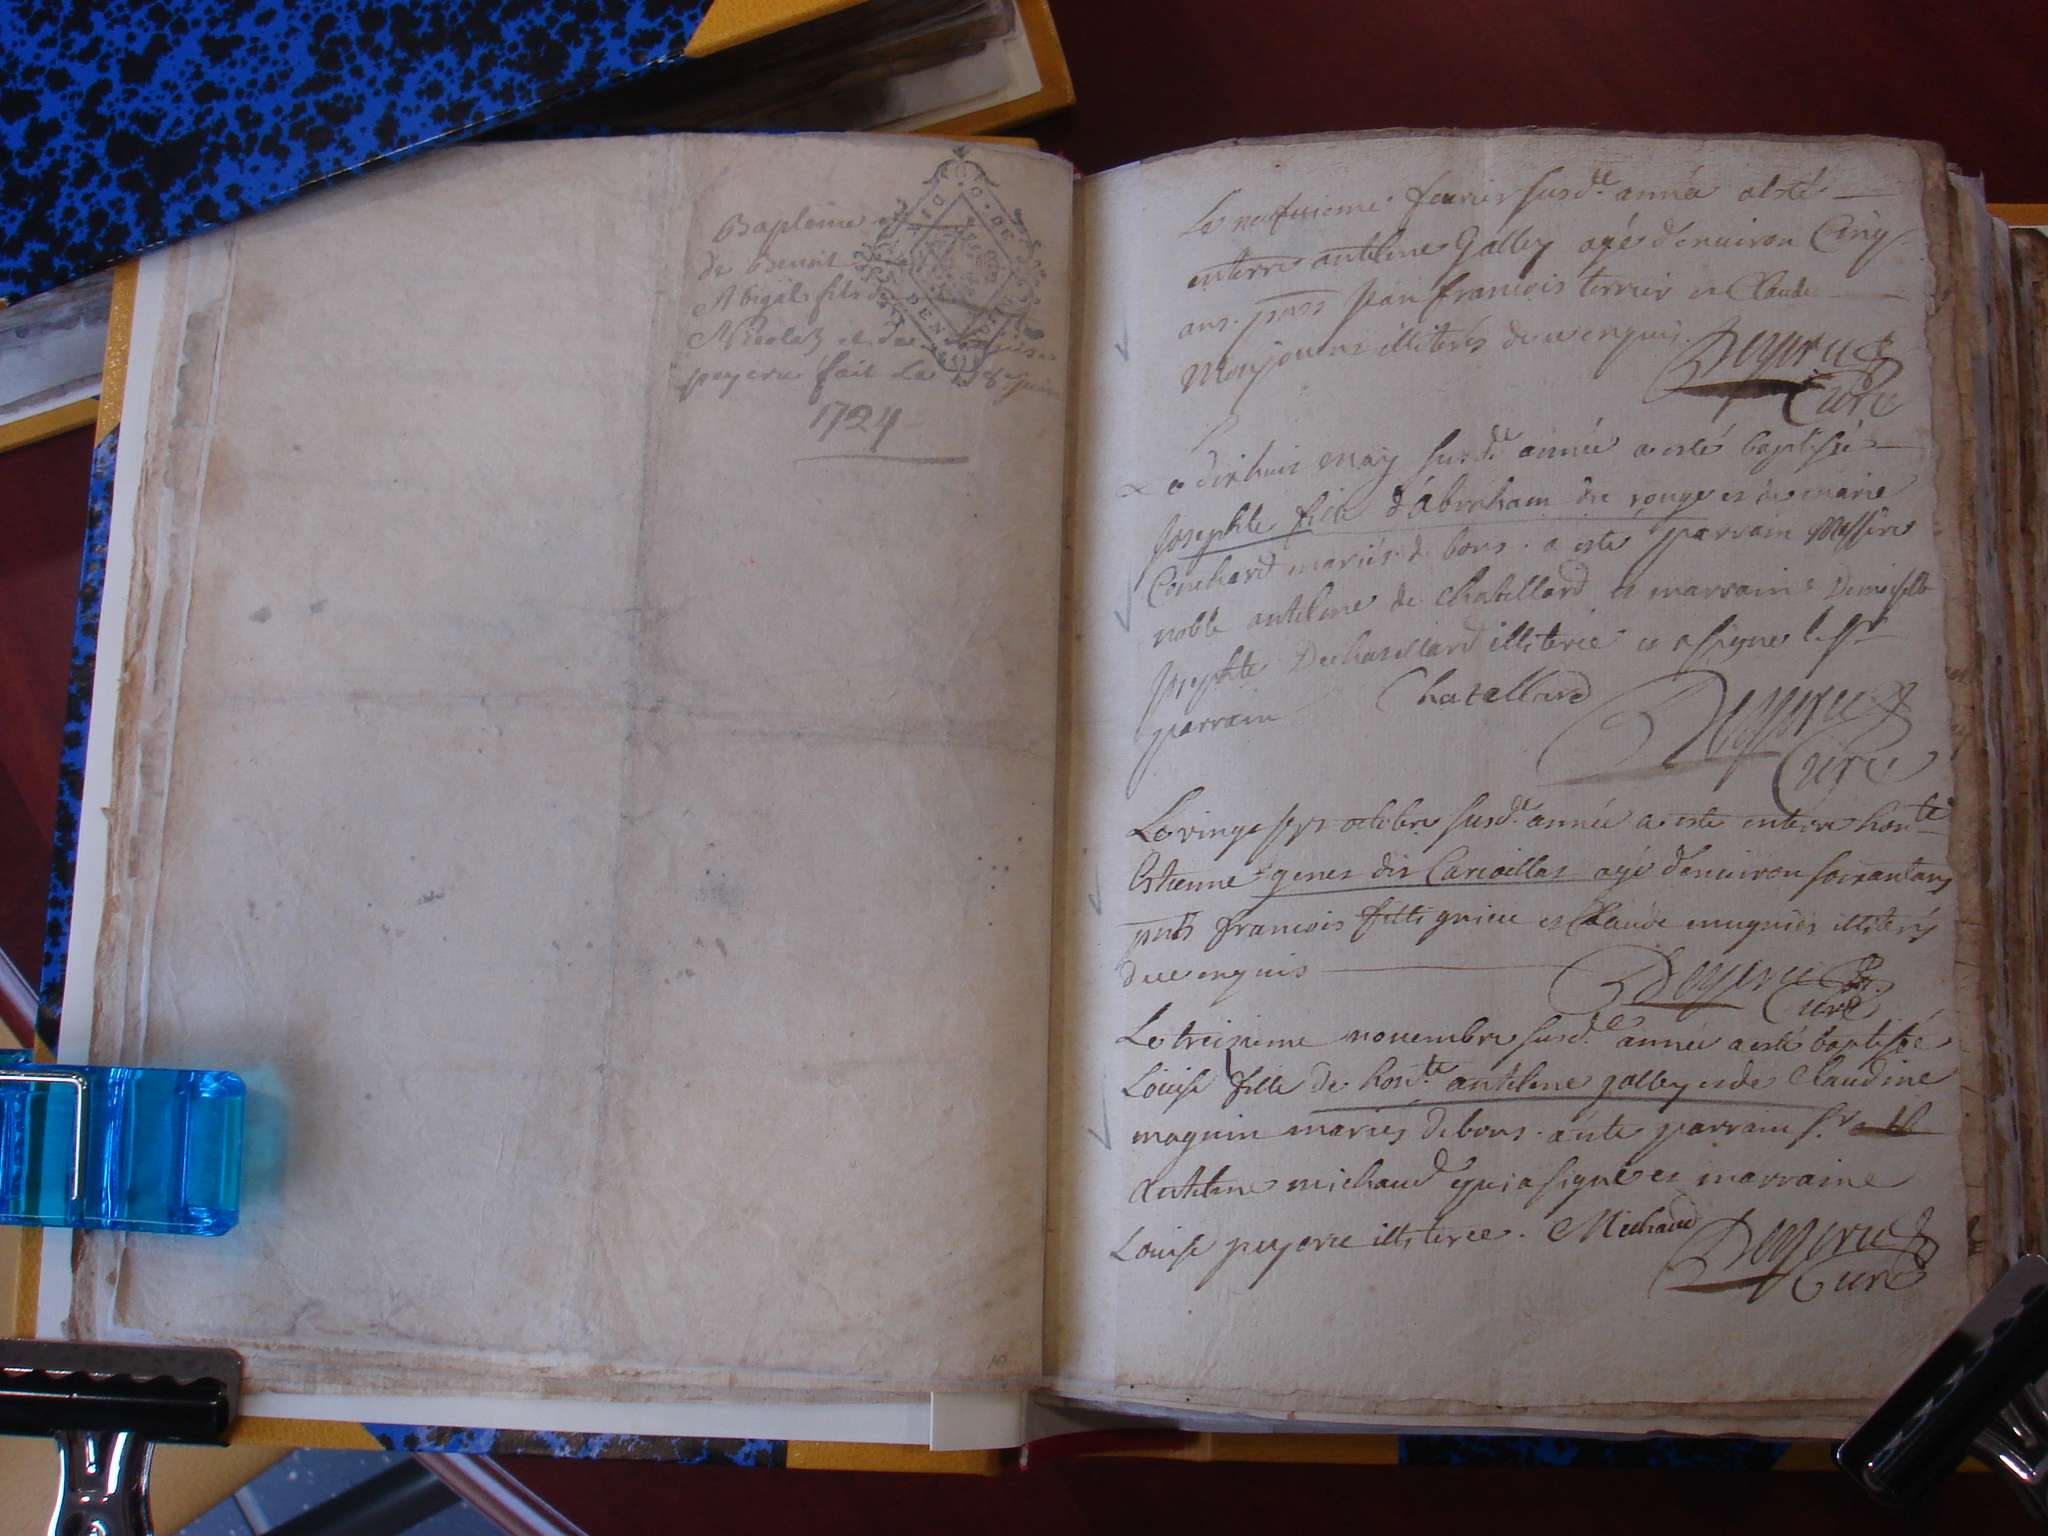 Bapteme
de Benoit
Abigal fils de
Nicolas et de
peyeru fait Le
1724
Le neufvieme feurier susd.te année a esté
enterre anthelme Galley agé d'enuiron Cinq
ans. pnts Jean francois terrier et Claude
Monjouent illiterés de ce enquis. Deyeru
Curé
Le dixhuit may susd.te année a esté baptisée
Josephte fille d'abraham de rouge et de marie
Couchard mariés de bons. a esté parrain Messire
noble anthelme de Chatillard et marraine Demoiselle
Josephte Dechatillard illiterée et a signé le sr
parrain Chatellard Deyeru
Curé
Le vingt sept octobre susd.te année a esté enterré hon.te
Estienne genet dit Caroillat agé d'enuiron soixantans
pnts francois fillignieu et Claude mugnier illiterés
de ce enquis Deyeru
Curé
Le treisieme nouembre susd.e année a esté baptisée
Louise fille de hon.te anthelme galley et de Claudine
magnin mariés de bons. a esté parrain s.r
Anthelme michaud qui a signé et marraine
Louise peyerie illiterée. Michaud Deyeru
Curé